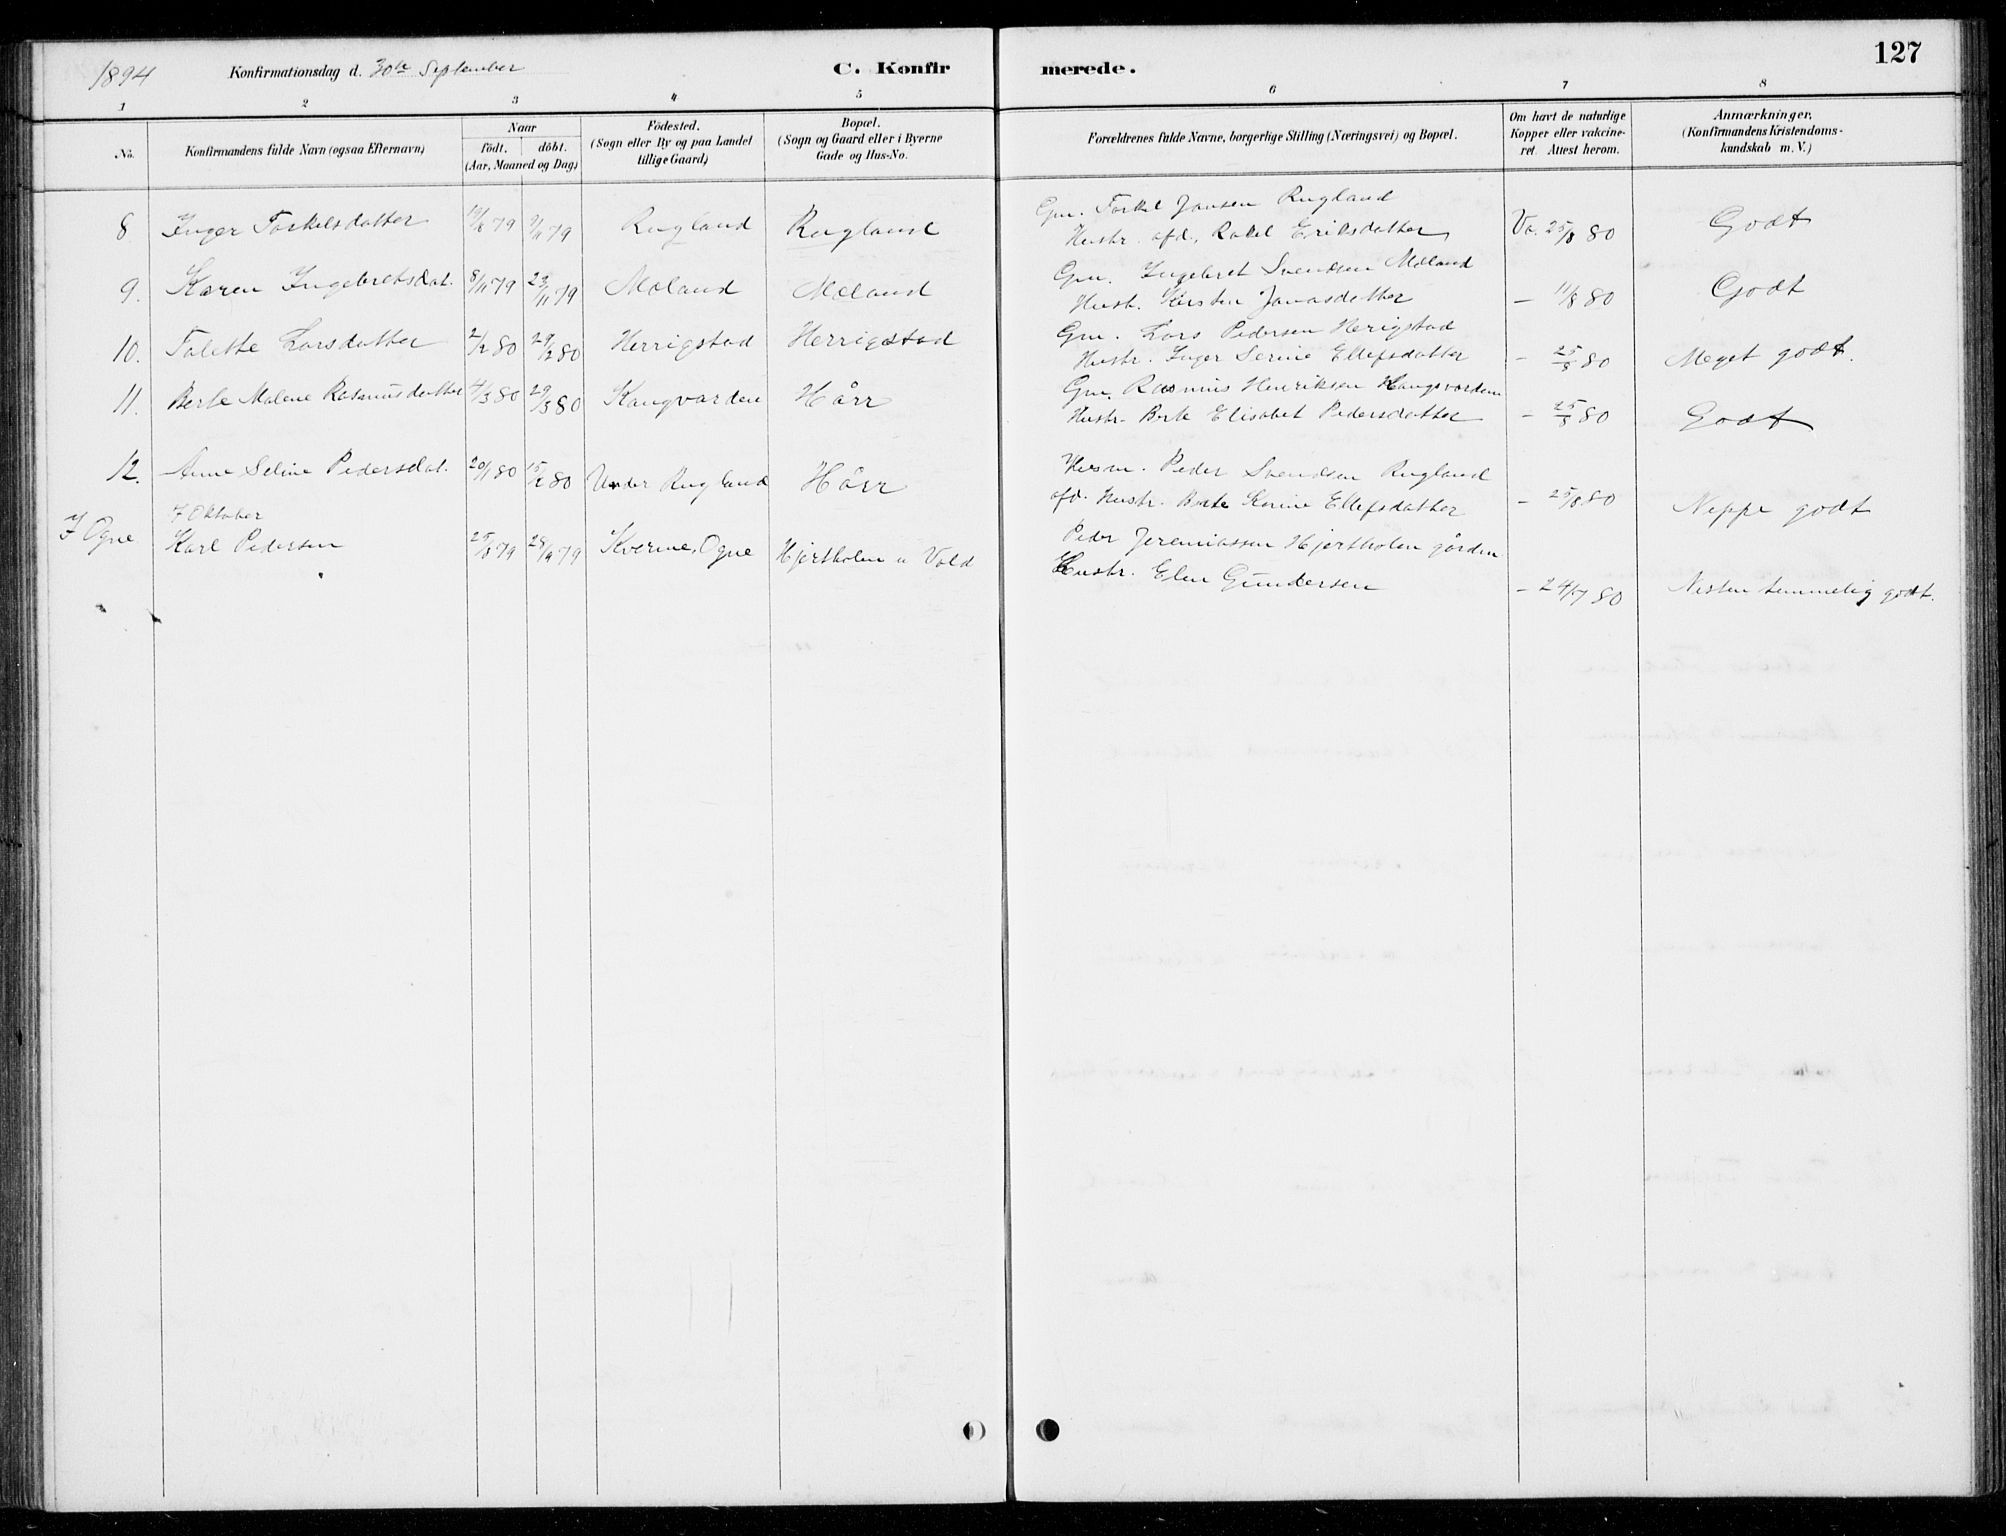 1894 Konfirmationsdag d. 30te September C. Konfirmerede. 127
1 2 3 4 5 6 7 8
No. Konfirmandens fulde Navn (ogsaa Efternavn) Naar født. døbt. (Aar, Maaned og Dag) Fødested. (Sogn eller By og paa Landet tillige Gaard) Bopæl. (Sogn og Gaard eller i Byerne Gade og Hus-No. Forældrenes fulde Navne, borgerlige Stilling (Næringsvei) og Bopæl. Om havt de naturlige Kopper eller vakcineret. Attest herom. Anmærkninger, (Konfirmandens Kristendomskundskab m. V.)
8 Inger Torkelsdatter 79 9/11 79 Rugland Rugland Gm. Torkel Jansen Rugland
Hustr. afd. Rakel Eriksdatter Va. 25/8 80 Godt
9. Karen Ingebretsdat. 8/11 79 23/11 79 Moland Moland Gm. Ingebret Svendsen Moland
Hustr. Kirsten Jonasdatter – 11/8 80 Godt
10. Tolette Larsdatter 2/2 80 29/2 80 Herrigstad Herrigstad Gm. Lars Pedersen Herigstad
Hustr. Inger Serine Ellefsdatter – 25/8 80 Meget godt.
11. Berte Malene Rasmusdatter 4/3 80 29/3 80 Kongvarden Hårr Gm. Rasmus Henriksen Kongsvarden
Hustr. Berte Elisabet Pedersdatter – 25/8 80 Godt
12. Anne Seline Pedersdat. 20/1 80 15/2 80 Under Rugland Hårr Husm. Peder Svendsen Rugland
afd. Hustr. Berte Karine Ellefsdatter – 25/8 80 Neppe godt
7 Oktober
I Ogne Karl Pedersen 25/8 79 28/9 79 Kverme, Ogne Hjertholen u Vold Peder Jeremiassen Hjertholen gården
Hustr. Elen Gundersen – 24/7 80 Nesten temmelig godt.